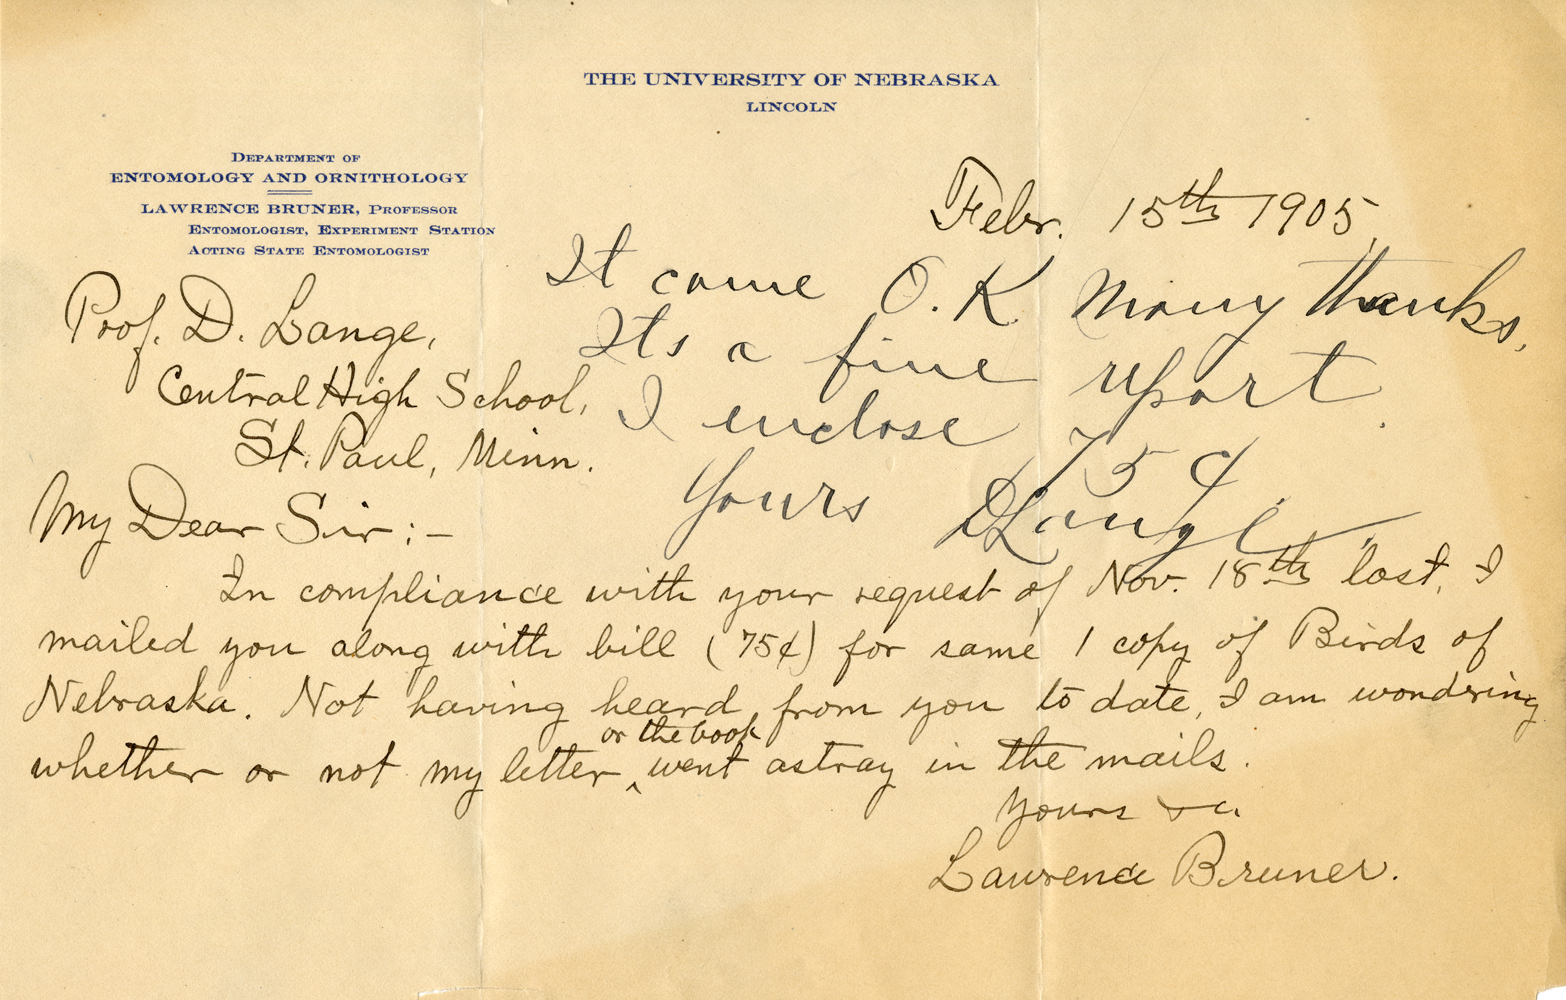 THE UNIVERSITY OF NEBRASKA
LINCOLN
DEPARTMENT OF
ENTOMOLOGY AND ORNITHOLOGY
LAWRENCE BRUNER, PROFESSOR
ENTOMOLOGIST, EXPERIMENT STATION
ACTING STATE ENTOMOLOGIST
Febr. 15th 1905,
It came O.K. Many thanks,
Its a fine report.
I enclose 75¢
Yours DLange
Prof. D. Lange,
Central High School,
St. Paul, Minn.
My Dear Sir:-
In compliance with your request of Nov. 18th last, I
mailed you along with bill (75¢) for same 1 copy of Birds of
Nebraska. Not having heard from you to date, I am wondering
or the book
whether or not my letter ‸ went astray in the mails.
Yours &c.
Lawrence Bruner.